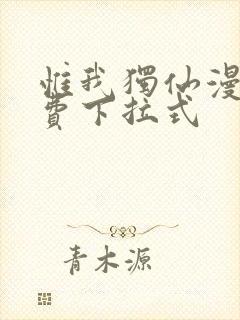 惟我獨仙漫
費下拉式
青木源